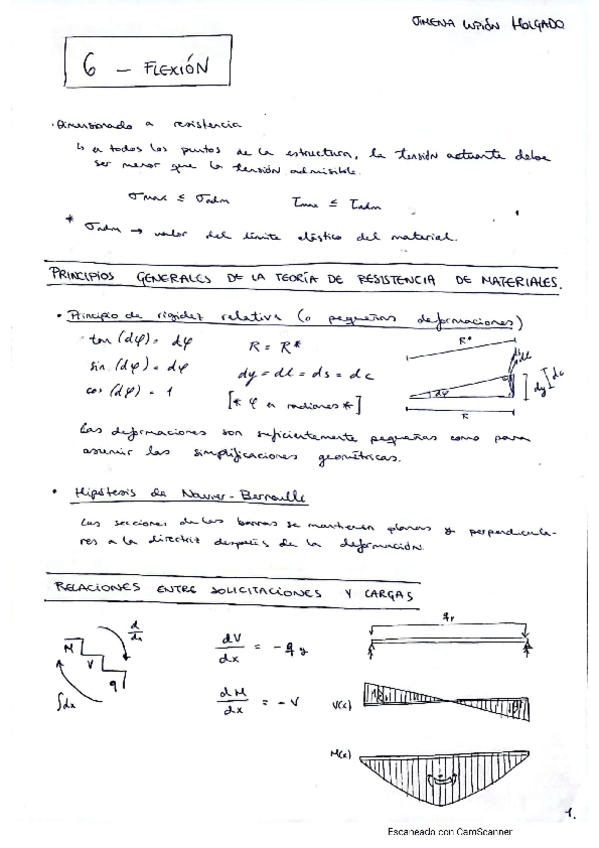 JIMENA LUPIÓN HOLGADO
6 – FLEXIÓN
· Dimensionado a resistencia
↳ en todos los puntos de la estructura, la tensión actuante debe
ser menor que la tensión admisible.
σmax ≤ σadm τmax ≤ τadm
* σadm → valor del límite elástico del material.
PRINCIPIOS GENERALES DE LA TEORÍA DE RESISTENCIA DE MATERIALES.
· Principio de rigidez relativa (o pequeñas deformaciones)
tan (dφ) = dφ R = R*
sin (dφ) = dφ dy = dl = ds = dc
cos (dφ) = 1 [* φ en radianes *]
R* ds dl dφ dy dc R
Las deformaciones son suficientemente pequeñas como para
asumir las simplificaciones geométricas.
· Hipótesis de Navier-Bernoulli
Las secciones de las barras se mantienen planas y perpendicula-
res a la directriz después de la deformación.
RELACIONES ENTRE SOLICITACIONES Y CARGAS
d/dx M V q ∫dx
dV/dx = -qy
dM/dx = -V
qy
V(x)
M(x)
1.
Escaneado con CamScanner